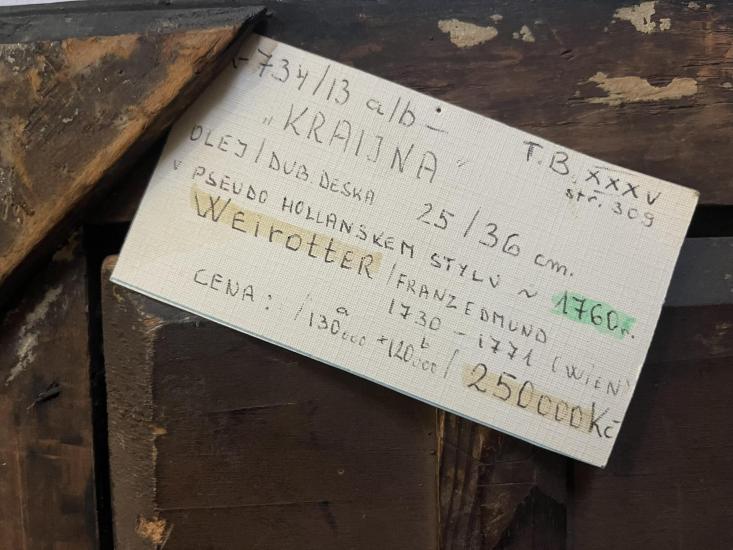 734/13 a/b –
T.B. XXXV
str. 309
"KRAIJNA"
OLEJ/DUB. DESKA 25/36 cm.
V PSEUDO HOLLANSKEM STYLU ~ 1760r.
WEIROTTER/FRANZ EDMUND
1730 – 1771 (WIEN)
CENA: /130000 a +120000 b/ 250000 Kč